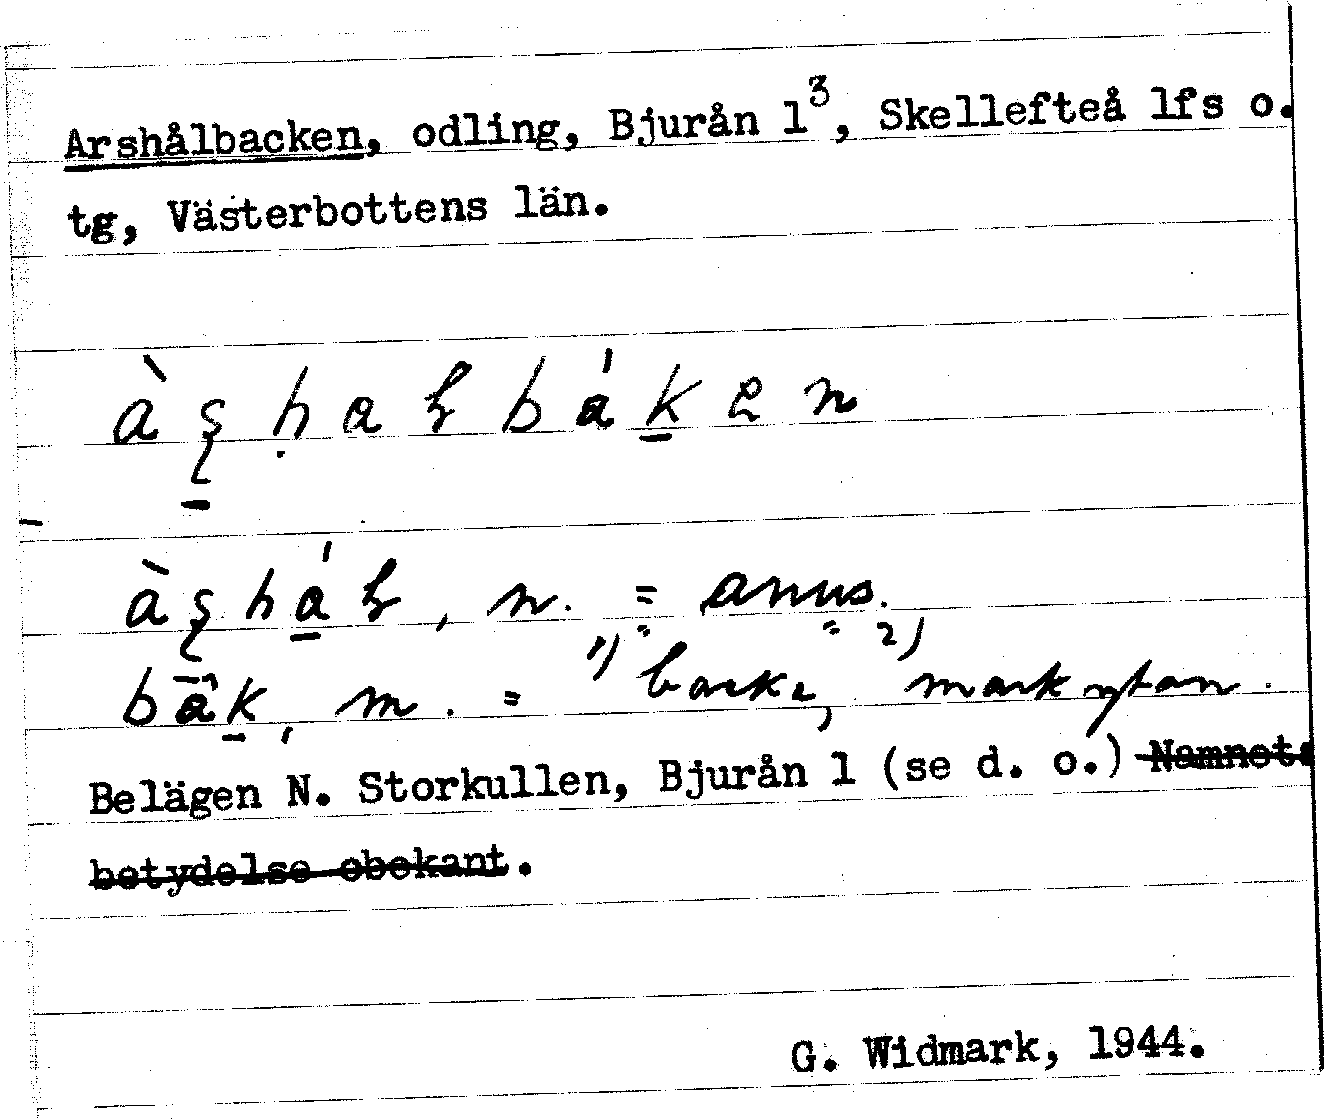 Arshålbacken, odling, Bjurån 1³, Skellefteå lfs o.
tg, Västerbottens län.
n. = anus.
m. = 1) backe, 2) markytan.
Belägen N. Storkullen, Bjurån 1 (se d. o.) Namnets
betydelse obekant.
G. Widmark, 1944.